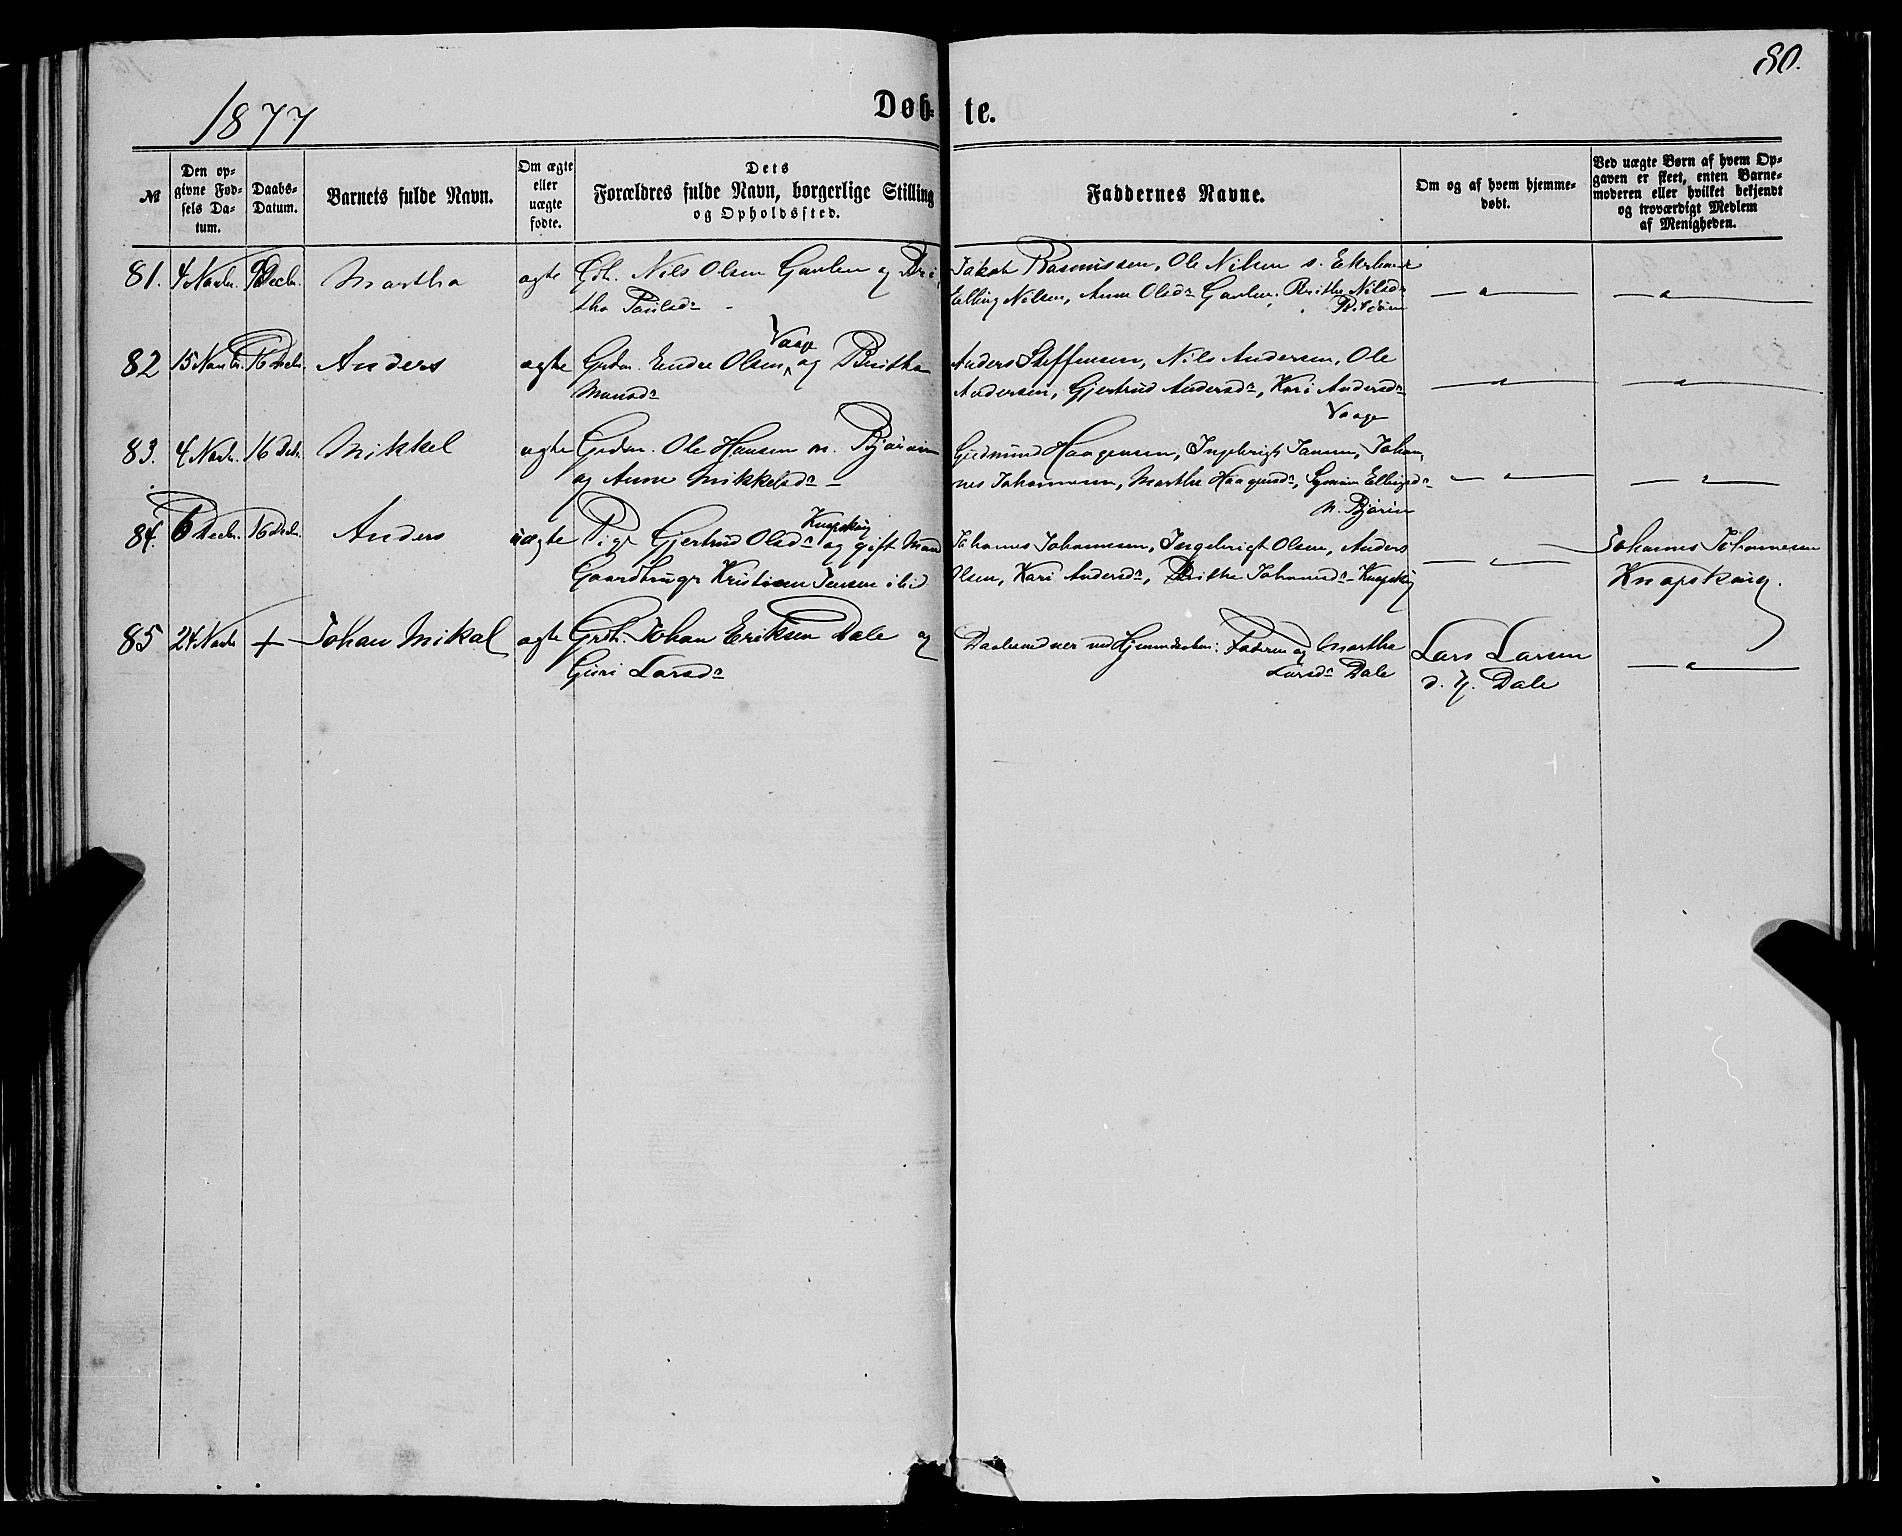 80.
1877
Døb- te.
№
Den op-
givne Fød-
sels Da-
tum.
Daabs-
Datum.
Barnets fulde Navn.
Om ægte
eller
uægte
fødte.
Dets
Forældres fulde Navn, borgerlige Stilling
og Opholdssted.
Faddernes Navne.
Om og af hvem hjemme-
døbt.
Ved uægte Børn af hvem Op-
gaven er skeet, enten Barne-
moderen eller hvilket bekjendt
og troværdigt Medlem
af Menigheden.
81. 4 Novbr. Decbr. Martha ægte Nils Olsen Gaulen og Bri-
tha Paulsdr
Jakob Rasmussen, Ole Nilsen
Elling Nilsen, Anne Olsdr Gaulen, Brithe Nilsdr
82 15 Novbr. 16 Decbr. Anders ægte Grdm. Endre Olsen Vaage og Britha
Monsdr
Anders Steffensen, Nils Andersen, Ole
Andersen, Gjertrud Andersdr, Kari Andersdr
Vaage
83. 4 Novbr. 16 Decbr. Mikkel ægte Grdm. Ole Hansen n. Bjørein
og Anne Mikkelsdr
Gudmund Haagensen, Ingebrigt Jansen, Johan-
nes Johannesen, Marthe Haagensdr, Ellingsdr
n. Bjørein
84. 6 Decbr. 16 Decbr. Anders uægte Pige Gjertrud Olsdr Knapskog og gift Mand
Gaardbruger Kristian Jensen ibid
Johannes Johannesen, Ingebrigt Olsen, Anders
Olsen, Kari Andersdr, Brithe Johannesdr Knapskog
Johannes Johannesen
Knapskog.
85 24 Novbr + Johan Mikal ægte Grbr. Johan Eriksen Dale og
Guri Larsdr
Daabsvidner ved Hjemmedaaben: Faderen og Martha
Larsdr Dale
Lars Larsen
d. y. Dale